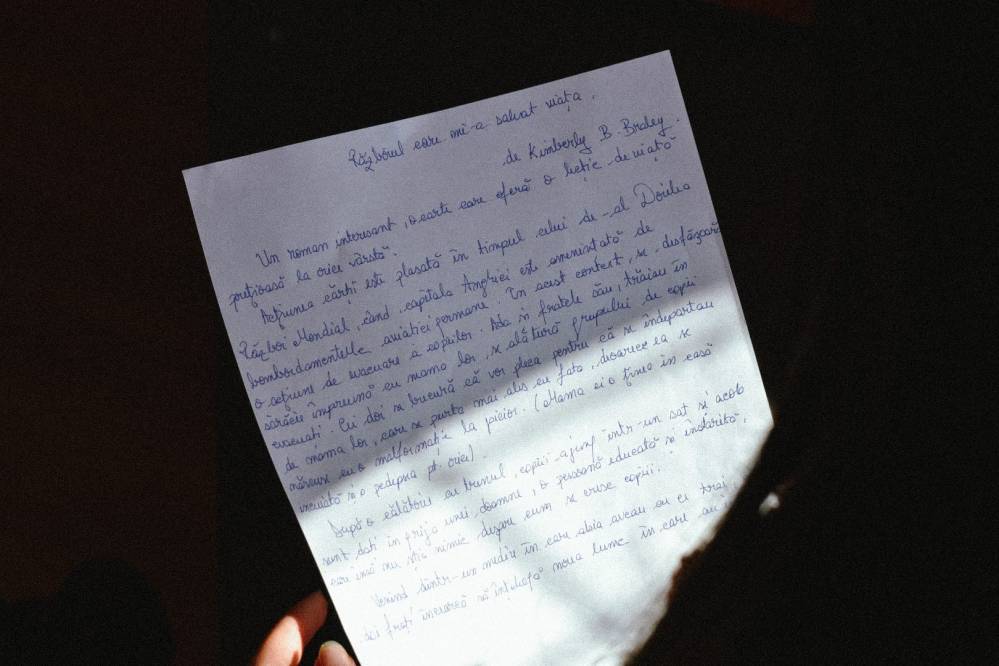 Războiul care mi-a salvat viața.
de Kimberly B. Bradley.
Un roman interesant, o carte care oferă o lecție de viață
prețioasă la orice vârstă.
Acțiunea cărții este plasată în timpul celui de-al Doilea
Război Mondial, când capitala Angliei este amenințată de
bombardamentele aviației germane. În acest context, se desfășoară
o acțiune de evacuare a copiilor. Ada și fratele său, trăiau în
sărăcie împreună cu mama lor, se alătură grupului de copii
evacuați. Cei doi se bucură că vor pleca pentru că se îndepărtau
de mama lor, care se purta mai ales cu fata, deoarece ea se
născuse cu o malformație la picior. (Mama ei o ținea în casă
încuiată și o pedepsea pt. orice).
După o călătorie cu trenul, copiii ajung într-un sat și acolo
sunt dați în grija unei doamne, o persoană educată și înstărită,
care însă nu știa nimic despre cum se cresc copiii.
Venind dintr-un mediu în care abia aveau cu ce trăi
doi frați încearcă să înțeleagă noua lume în care au